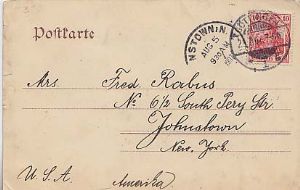 Postkarte
NSTOWN.N.
AUG 5
930AM
Mrs. Fred Rabus
No 6½ South Pery Str
Johnstown
New. York.
U.S.A. Amerika
10 10